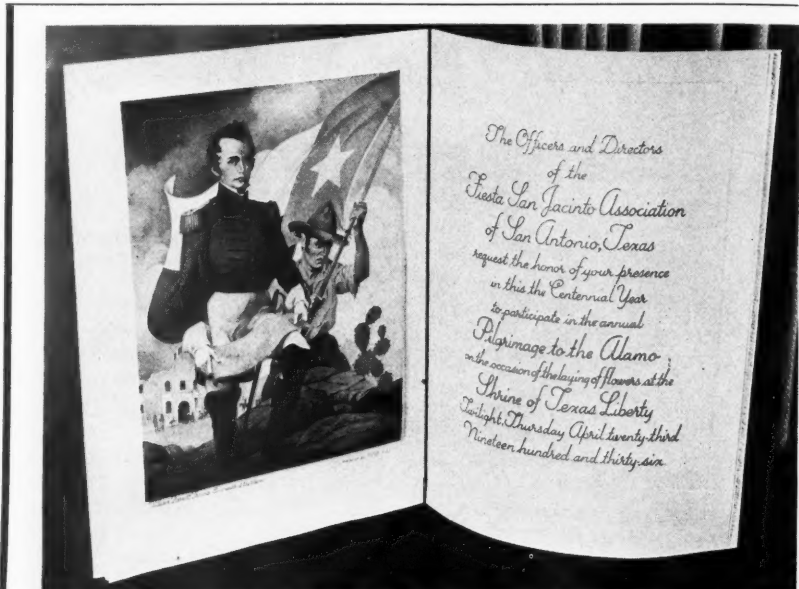 The Officers and Directors
of the
Fiesta San Jacinto Association
of San Antonio, Texas
request the honor of your presence
in this the Centennial Year
to participate in the annual
Pilgrimage to the Alamo
on the occasion of the laying of flowers at the
Shrine of Texas Liberty
Twilight, Thursday April twenty-third
Nineteen hundred and thirty-six